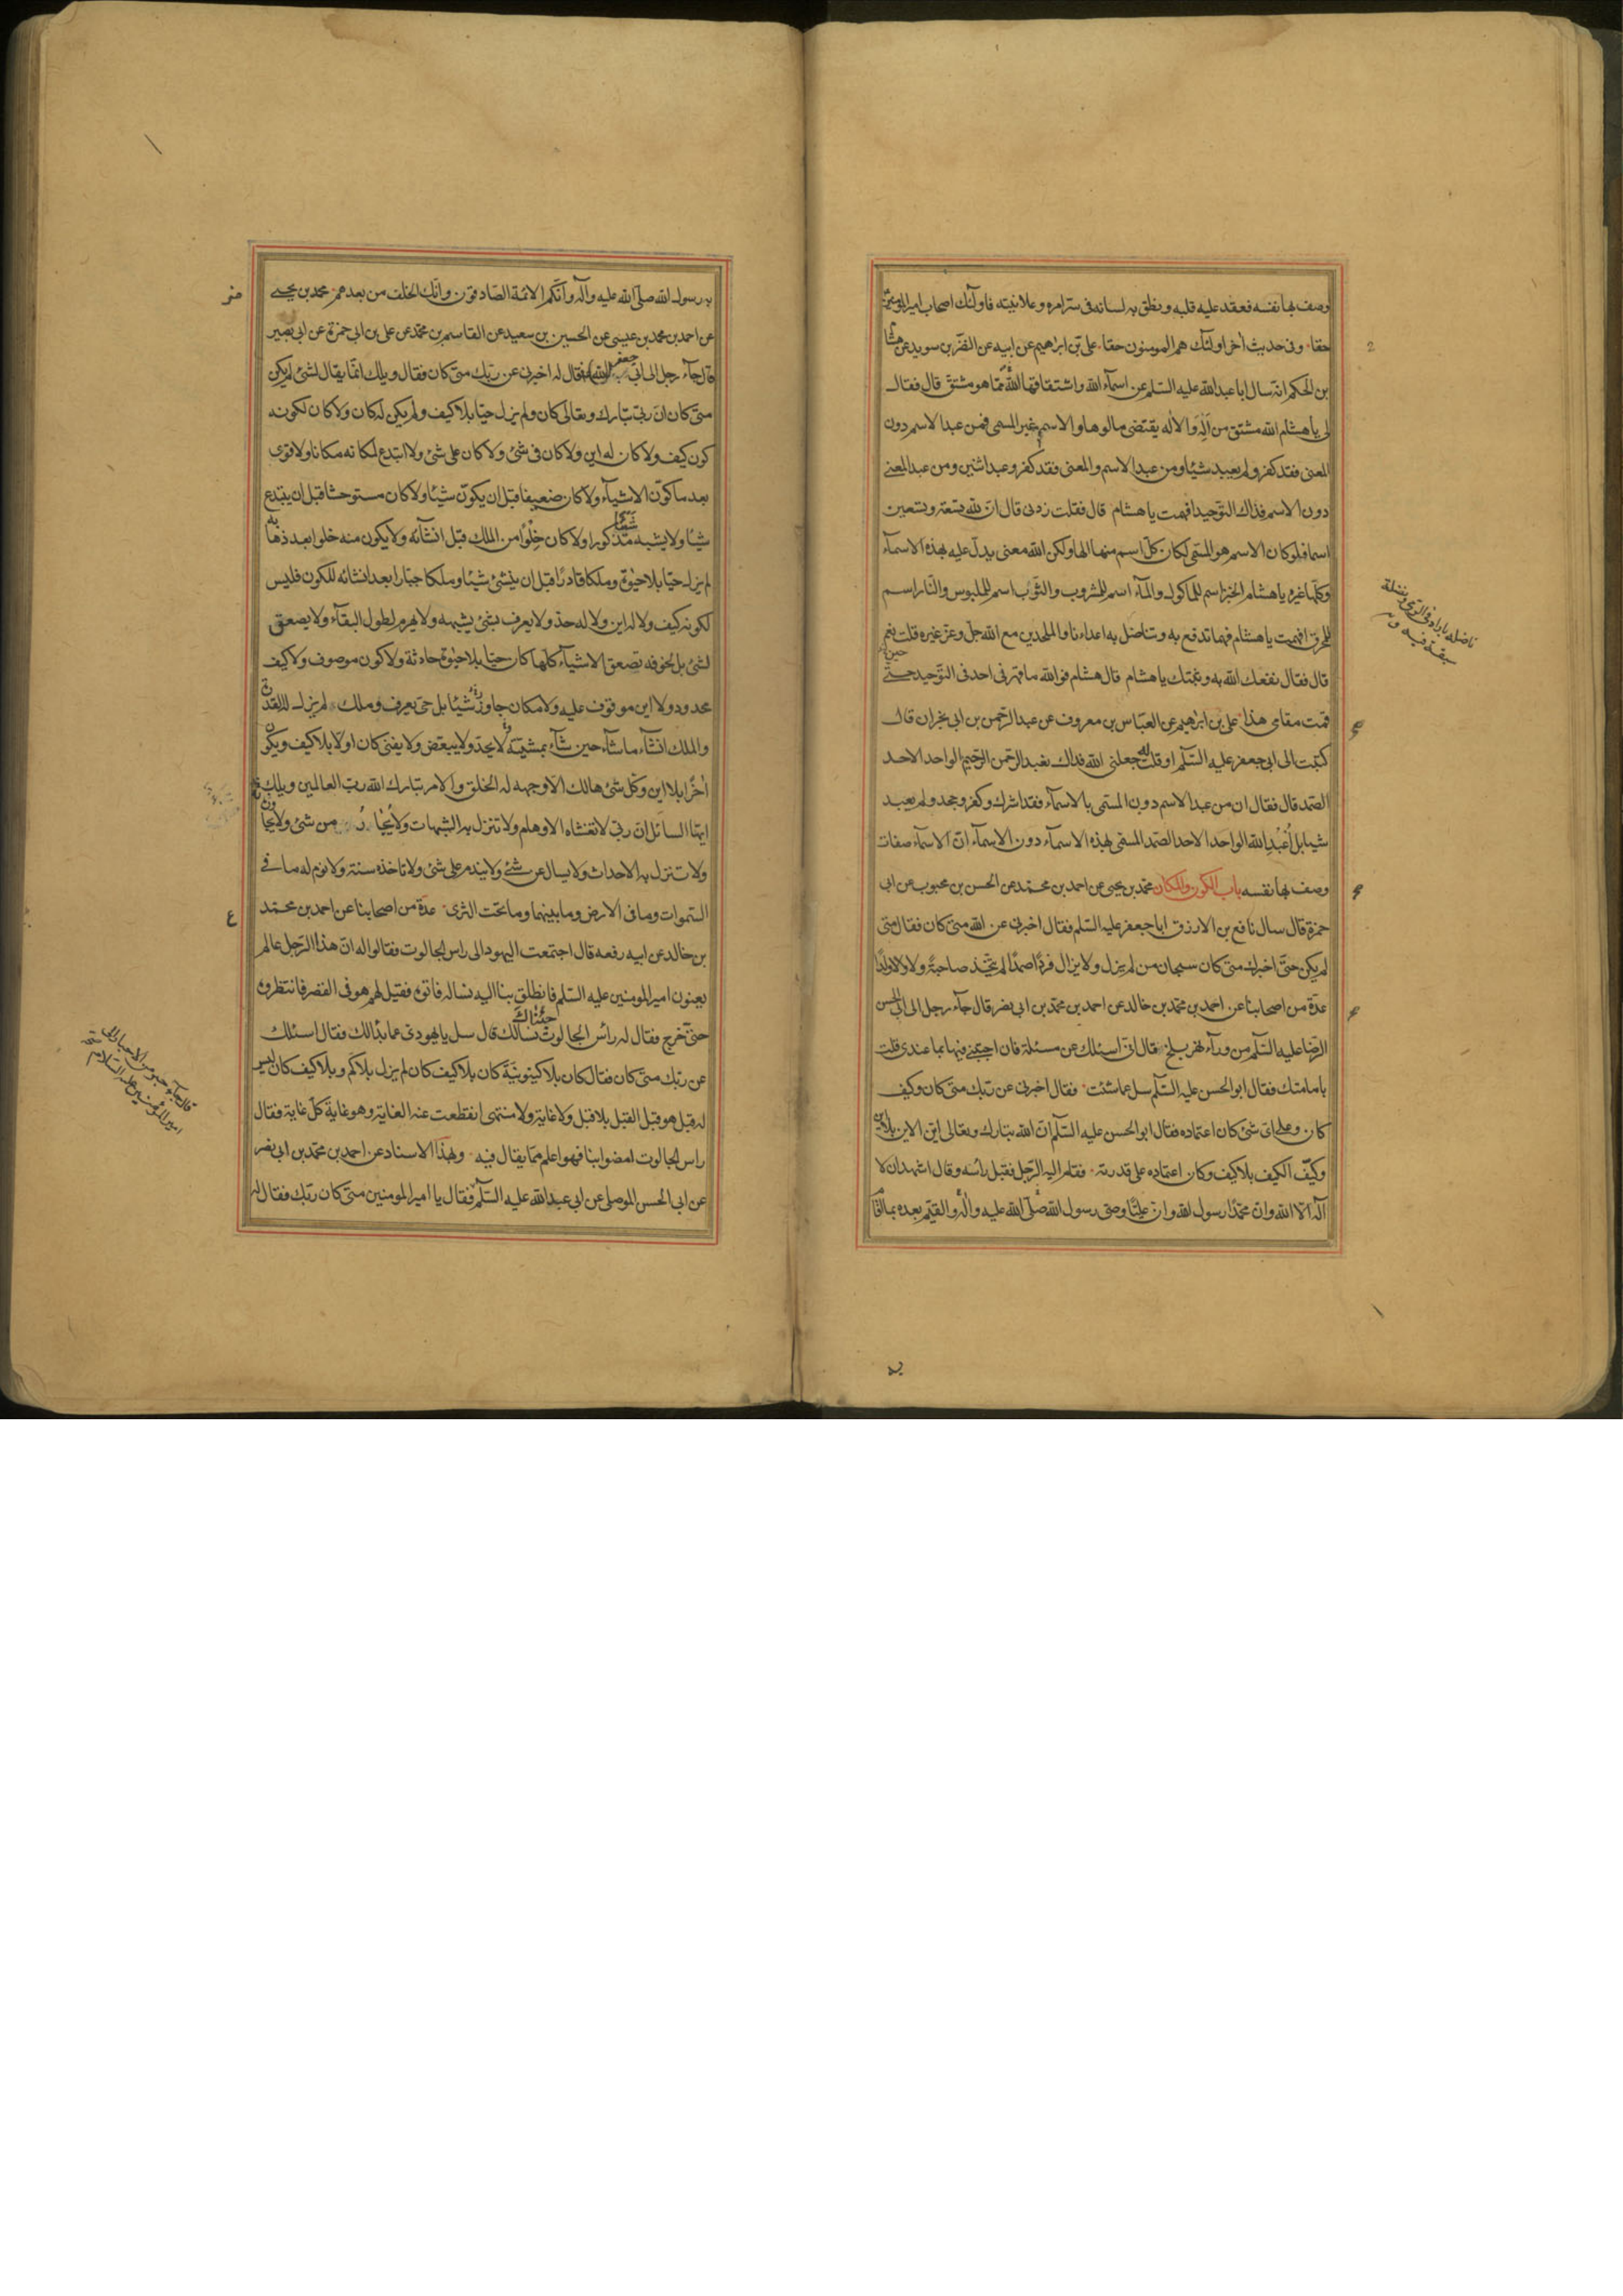 وصف بها نفسه فعقد عليه قلبه ونطق به لسانه فى سرّ امره وعلانيته فاولئك اصحاب اميرالمومنين
حقا وفى حديث اخر اولئك هم المومنون حقا على بن ابراهيم عن ابيه عن النضر بن سويد عن هشا
بن الحكم انه سال ابا عبدالله عليه السلم عن اسمآء الله واشتقاقها الله ممّا هو مشتق قال فقال
لى يا هشام الله مشتق من اله والاله يقتضى مالوها والاسم غير المسمى فمن عبد الاسم دون
المعنى فقد كفر ولم يعبد شيئا ومن عبد الاسم والمعنى فقد كفر وعبد اثنين ومن عبد المعنى
دون الاسم فذاك التوحيد افهمت يا هشام قال فقلت زدنى قال ان لله تسعة وتسعين
اسما فلو كان الاسم هو المسمّى لكان كل اسم منها الها ولكن الله معنى يدلّ عليه بهذه الاسمآء
وكلّها غيره يا هشام الخبز اسم للماكول والمآء اسم للمشروب والثوب اسم للملبوس والنّار اسم
للمحرق افهمت يا هشام فهما تدفع به وتناضل به اعداءنا والملحدين مع الله جلّ وعزّ غيره قلت نعم
قال فقال نفعك الله به وثبتك يا هشام قال هشام فوالله ما قهرنى احد فى التوحيد حتى
قمت مقامى هذا على بن ابراهيم عن العبّاس بن معروف عن عبد الرّحمن بن ابى نجران قال
كتبت الى ابى جعفر عليه السّلم او قلت له جعلنى الله فداك نعبد الرّحمن الرّحيم الواحد الاحد
الصّمد قال فقال ان من عبد الاسم دون المسمى بالاسمآء فقد اشرك وكفر وجحد ولم يعبد
شيئا بل اعبد الله الواحد الاحد الصّمد المسمى بهذه الاسماء دون الاسماء انّ الاسمآء صفات
وصف بها نفسه باب الكون والمكان محمّد بن يحيى عن احمد بن محمّد عن الحسن بن محبوب عن ابى
حمزة قال سال نافع بن الازرق ابا جعفر عليه السّلم فقال اخبرنى عن الله متى كان فقال متى
لم يكن حتى اخبرك متى كان سبحان من لم يزل ولا يزال فردا صمدا لم يتّخذ صاحبة ولا ولدا
عدّة من اصحابنا عن احمد بن محمّد بن خالد عن احمد بن محمّد بن ابى نصر قال جآء رجل الى ابى الحسن
الرّضا عليه السّلم من ورآء نهر بلخ قال انّى اسئلك عن مسئلة فان اجبتنى فيها بما عندى قلت
بامامتك فقال ابو الحسن عليه السّلم سل عما شئت فقال اخبرنى عن ربّك متى كان وكيف
كان وعلى اىّ شئ كان اعتماده فقال ابو الحسن عليه السّلم انّ الله تبارك وتعالى ايّن الاين بلا اين
وكيّف الكيف بلا كيف وكان اعتماده على قدرته فقام اليه الرّجل فقبل رأسه وقال اشهد ان لا
آله الّا الله وانّ محمّدا رسول الله وانّ عليّا وصى رسول الله صلّى الله عليه وآله والقيّم بعده بما قا
ناضله باراه فى الرمى ونضله
سبقه فيه
به رسول الله صلّى الله عليه وآله وانّكم الائمّة الصّادقون وانّك الخلف من بعدهم محمّد بن يحيى
عن احمد بن محمّد بن عيسى عن الحسين بن سعيد عن القاسم بن محمّد عن على بن ابى حمزة عن ابى بصير
قال جآء رجل الى ابى جعفر فقال له اخبرنى عن ربّك متى كان فقال ويلك انّما يقال لشئ لم يكن
متى كان انّ ربّى تبارك وتعالى كان ولم يزل حيّا بلا كيف ولم يكن له كان ولا كان لكونه
كون كيف ولا كان له اين ولا كان فى شئ ولا كان على شئ ولا ابتدع لمكانه مكانا ولا قوى
بعد ما كوّن الاشيآء ولا كان ضعيفا قبل ان يكوّن شيئا ولا كان مستوحشا قبل ان يبتدع
شيئا ولا يشبه شيئا مذكورا ولا كان خلوا من الملك قبل انشآئه ولا يكون منه خلوا بعد ذها به
لم يزل حيّا بلا حيوة وملكا قادرا قبل ان ينشئ شيئا وملكا جبّارا بعد انشائه للكون فليس
لكونه كيف ولا له اين ولا له حدّ ولا يعرف بشئ يشبهه ولا يهرم لطول البقآء ولا يصعق
لشئ بل لخوفه تصعق الاشيآء كلّها كان حيّا بلا حيوة حادثة ولا كون موصوف ولا كيف
محدود ولا اين موقوف عليه ولا مكان جاور شيئا بل حىّ يعرف وملك لم يزل له القدرة
والملك انشآء ما شآء حين شآء بمشيّته لا يحدّ ولا يبعّض ولا يفنى كان اولا بلا كيف ويكون
اخرا بلا اين وكلّ شئ هالك الّا وجهه له الخلق والامر تبارك الله ربّ العالمين ويلك
ايّها السائل انّ ربّى لا تغشاه الاوهام ولا تنزل به الشبهات ولا يجار من شئ ولا يجاوزه
ولا تنزل به الاحداث ولا يسال عن شئ ولا يندم على شئ ولا تاخذه سنة ولا نوم له ما فى
السّموات وما فى الارض وما بينهما وما تحت الثرى عدّة من اصحابنا عن احمد بن محمّد
بن خالد عن ابيه رفعه قال اجتمعت اليهود الى راس الجالوت فقالوا له انّ هذا الرّجل عالم
يعنون اميرالمومنين عليه السّلم فانطلق بنا اليه نساله فاتوه فقيل لهم هو فى القصر فانتظروه
حتى خرج فقال له رأس الجالوت جئناك نسالك قال سل يا يهودى عما بدا لك فقال اسئلك
عن ربّك متى كان فقال كان بلا كينونيّة كان بلا كيف كان لم يزل بلا كم وبلا كيف كان ليس
له قبل هو قبل القبل بلا قبل ولا غاية ولا منتهى انقطعت عنه الغاية وهو غاية كلّ غاية فقال
راس الجالوت امضوا بنا فهو اعلم ممّا يقال فيه وبهذا الاسناد عن احمد بن محمّد بن ابى نصر
عن ابى الحسن الموصلى عن ابى عبدالله عليه السّلم فقال يا اميرالمومنين متى كان ربّك فقال له
قال جآء حبر من الاحبار الى
اميرالمؤمنين عليه السّلام